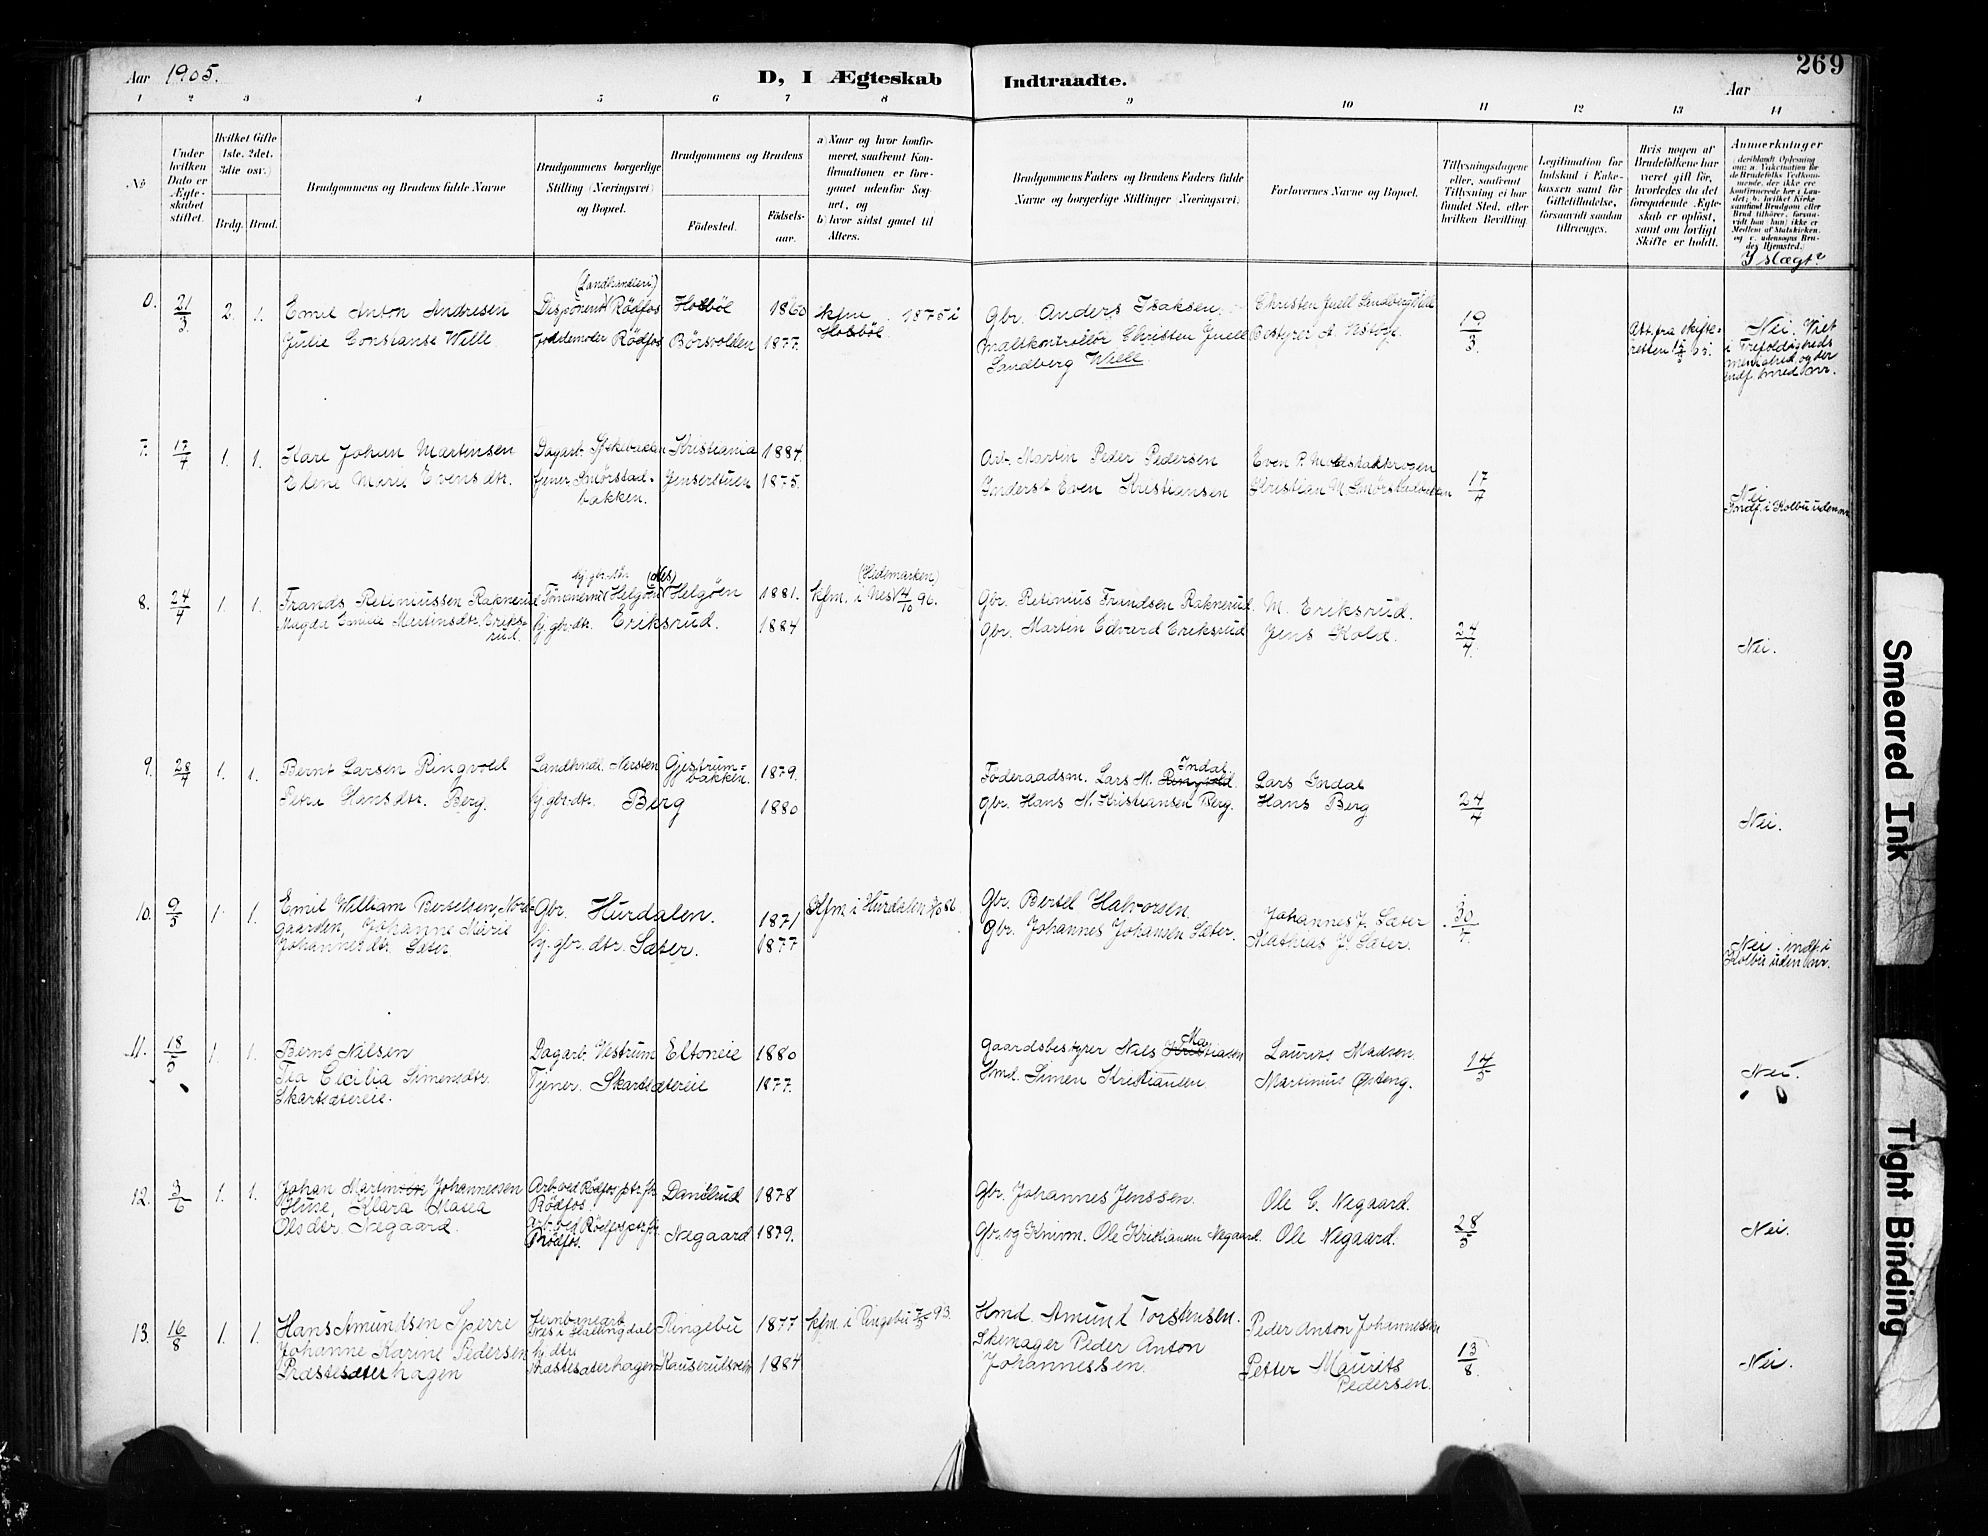 Aar 1905.
D, I Ægteskab Indtraadte.
Aar
269
1 2 3 4 5 6 7 8 9 10 11 12 13 14
No
Under hvilken Dato er Ægteskabet stiftet.
Hvilket Gifte (1ste, 2det, 3die osv.)
Brdg. Brud.
Brudgommens og Brudens fulde Navne
Brudgommens borgerlige Stilling (Næringsvei) og Bopæl.
Brudgommens og Brudens
Fødested.
Fødselsaar.
a) Naar og hvor konfirmeret, saafremt Konfirmationen er foregaaet udenfor Sognet, og
b) hvor sidst gaaet til Alters.
Brudgommens Faders og Brudens Faders fulde Navne og borgerlige Stillinger (Næringsvei).
Forlovernes Navne og Bopæl.
Tillysningsdagene eller, saafremt Tillysning ei har fundet Sted, efter hvilken Bevilling.
Legitimation for Indskud i Enkekassen samt for Giftetilladelse, forsaavidt saadan tiltrænges.
Hvis nogen af Brudefolkene har været gift før, hvorledes da det foregaaende Ægteskab er opløst, samt om lovligt Skifte er holdt.
Anmerkninger
I slægt?
21/3 2. 1. Emil Anton Andresen (Landhandleri) Disponent Rödfos Holböl 1860 kfm. 1875 i Holböl Gbr. Anders Isaksen. Christen Juell Sandberg Wille
Julie Constance Wille Jordemoder Rödfos Börsvolden 1877. Maltkontrollör Christen Juell Sandberg Wille. Bestyrer A. 19/3. Att. fra skifteretten 15/3 05. Nei. Viet i Trefoldigheds menighed og der indf. med nr.
7. 17/4 1. 1. Karl Johan Martinsen Dagarb. Kristiania 1884. Arb. Martin Peder Pedersen Even P.
Elene Marie Evensdtr. tjener Smörstadbakken. Jenserstuen 1875. Inderst Even Kristiansen Kristian M. 17/4 Nei Indf. i Kolbu uden nr.
8. 24/4 1. 1. Frands Retinius­sen Raknerud (Helgöen (Nes) Helgöen 1881. kfm. i Nes 4/10 96. (Hedemarken) Gbr. Retinius Frandsen Raknerud. M. Eriksrud.
Magda Emilie Martinsdtr. Eriksrud. hj. gbr.dtr. Eriksrud. 1884 Gbr. Martin Edvard Eriksrud Jens Kold. 24/4. Nei.
9. 28/4 1. 1. Bernt Larsen Ringvold Landhndl. Nersten Gjestrumbakken. 1879. Föderaadsm. Lars M. Ringvold. Indal Lars Indal
Petra Hansdtr. Berg. hj. gbr.dtr. Berg 1880 Gbr. Hans N. Kristiansen Berg. Hans Berg 24/4 Nei.
10. 9/5 1. 1. Emil William Bertelsen Nordgaarden, Johanne Marie Johannesdtr. Sæter. Gbr. Hurdalen. 1871 Kfm. i Hurdalen Gbr. Bertel Halvorsen. Johannes J. Sæter
hj. gbr. dtr. Sæter. 1877 Gbr. Johannes Johansen Sæter. Mathias J. Sæter. 30/4. Nei. indf. i Kolbu uden nr.
11. 18/5 1. 1. Bernt Nilsen Dagarb. Vestrum Eltoneie 1880 Gaardsbestyrer Nils Kristiansen Ma Laurits Madsen
Cecilia Simensdtr. Skartsætereie. Tjener. Skartsætereie 1877. Hmd. Simen Kristiansen. Martinus Østeng. 14/5 Nei.
12. 3/6 1. 1. Johan Martinsen Johannessen Huse, Klara Masea Olsdtr Negaard. Arb. ved Rödfos ptr.fr. Rödfos. Danilrud 1878 Gbr. Johannes Jenssen. Ole C. Negaard.
Arb. ved Rödfos ptr.fr. Rödfos. Negaard 1879. Gbr. og Ole Kristiansen Negaard. Ole Negaard. 28/5 Nei.
13. 16/8 1. 1. Hans Amundsen Sperre Jernbanearb. Nes i Hallingdal Ringebu 1877 kfm. i Ringebu 93. Hmd. Amund Torstensen. Peder Anton Johannessen
Johanne Karine Pedersen Præstesæterhagen hj. dtr. Præstesæterhagen 1884 Skomager Peder Anton Johannessen. Petter Maurits Pedersen. 13/8 Nei.
Smeared Ink
Tight Binding